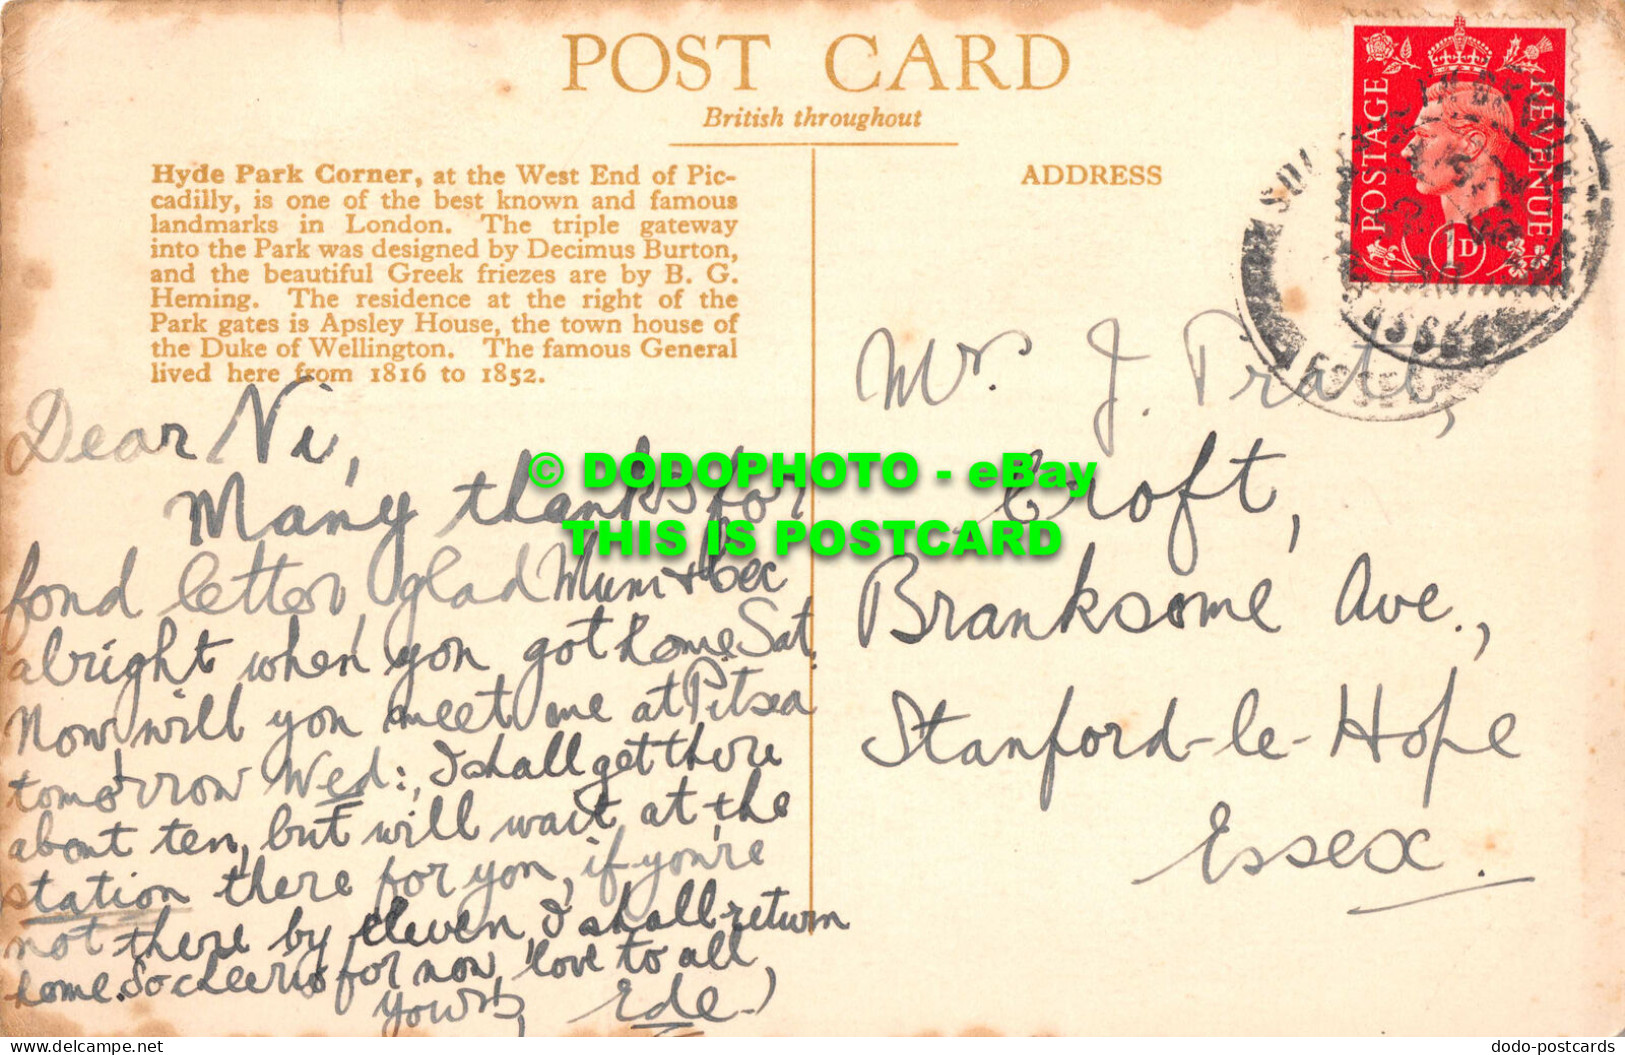 POST CARD
British throughout
Hyde Park Corner, at the West End of Pic-
cadilly, is one of the best known and famous
landmarks in London. The triple gateway
into the Park was designed by Decimus Burton,
and the beautiful Greek friezes are by B. G.
Heming. The residence at the right of the
Park gates is Apsley House, the town house of
the Duke of Wellington. The famous General
lived here from 1816 to 1852.
Dear Vi,
Many thanks for
fond letter, glad Mum &
alright when you got home Sat.
Now will you meet me at Pitsea
tomorrow Wed:, I shall get there
about ten, but will wait at the
station there for you, if you're
not there by eleven, I shall return
home. So cheerio for now, love to all,
Yours, Ede.
ADDRESS
POSTAGE
REVENUE
1D
Mr. J. Pratt,
Croft,
Branksome Ave.,
Stanford-le-Hope
Essex.
© DODOPHOTO - eBay
THIS IS POSTCARD
www.delcampe.net
dodo-postcards